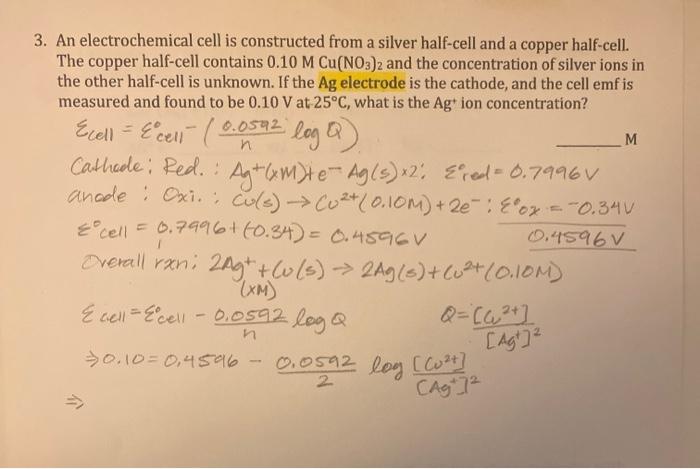 3. An electrochemical cell is constructed from a silver half-cell and a copper half-cell.
The copper half-cell contains 0.10 M Cu(NO₃)₂ and the concentration of silver ions in
the other half-cell is unknown. If the Ag electrode is the cathode, and the cell emf is
measured and found to be 0.10 V at 25°C, what is the Ag⁺ ion concentration?
Ɛcell = Ɛ°cell - (0.0592/n log Q)
_______ M
Cathode: Red. : Ag⁺(xM)+e⁻ Ag(s)×2: Ɛ°red = 0.7996V
anode : Oxi. : Cu(s) → Cu²⁺(0.10M) + 2e⁻ : Ɛ°ox = -0.34V
Ɛ°cell = 0.7996 + (-0.34) = 0.4596V 0.4596V
Overall rxn: 2Ag⁺ + Cu(s) → 2Ag(s) + Cu²⁺(0.10M)
(xM)
Ɛcell = Ɛ°cell - 0.0592/n log Q Q = [Cu²⁺]/[Ag⁺]²
⇒ 0.10 = 0.4596 - 0.0592/2 log [Cu²⁺]/[Ag⁺]²
⇒